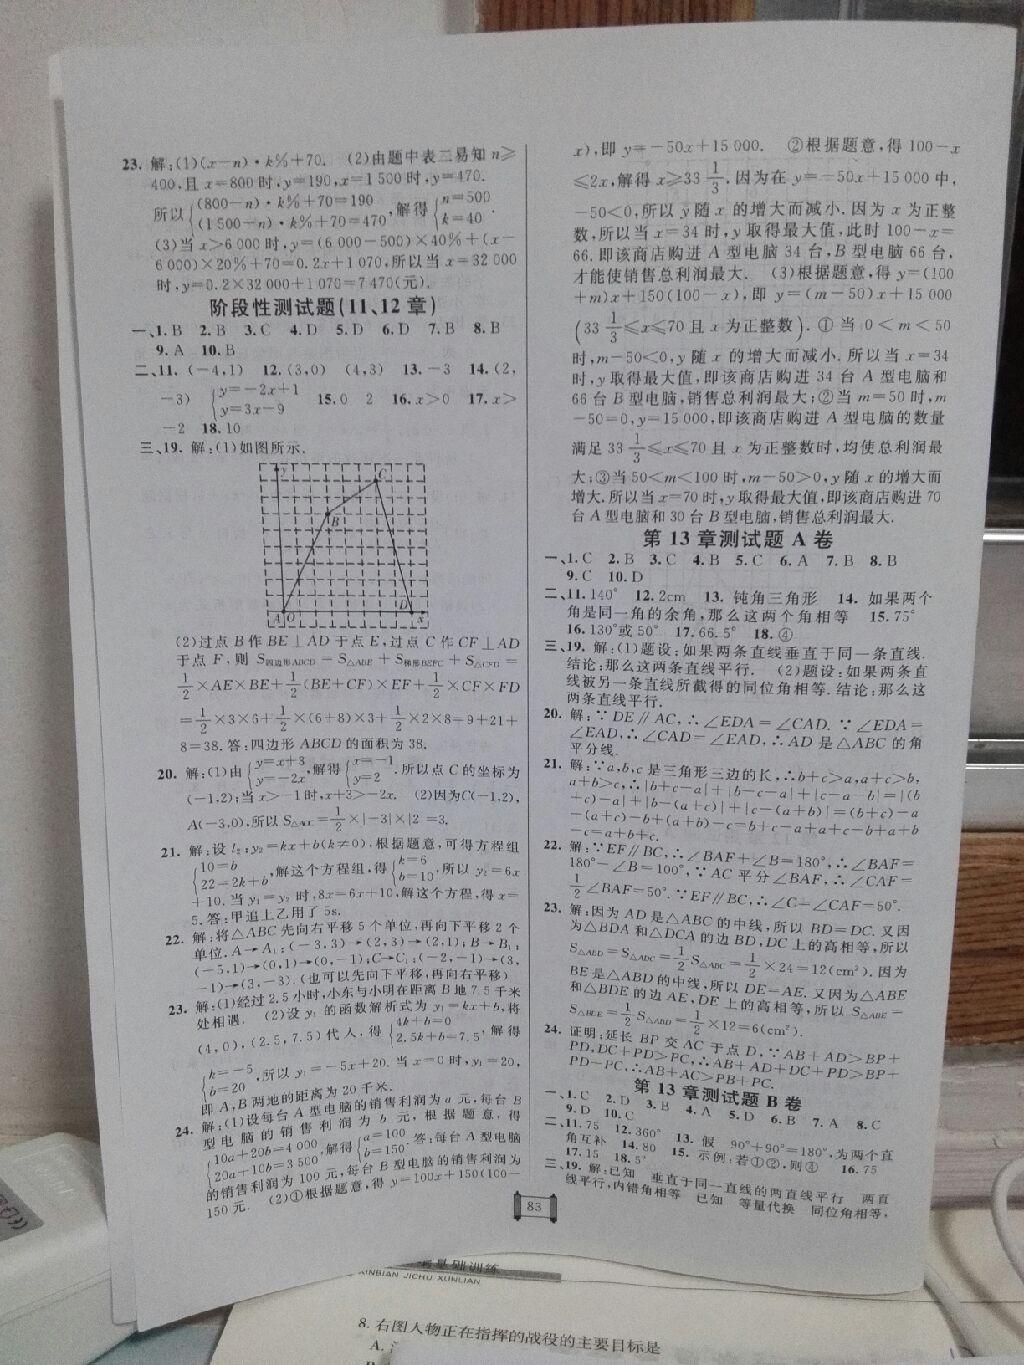 23. 解:(1)(x-n)·k%+70. (2)由题中表二易知 n≥
400,且 x=800 时,y=190,x=1 500 时,y=470.
所以{(800-n)·k%+70=190 (1 500-n)·k%+70=470,解得{n=500 k=40.
(3)当 x>6 000 时,y=(6 000-500)×40%+(x-
6 000)×20%+70=0.2x+1 070,所以当 x=32 000
时,y=0.2×32 000+1 070=7 470(元).
阶段性测试题(11、12 章)
一、1. B 2. B 3. C 4. D 5. D 6. D 7. B 8. B
9. A 10. B
二、11. (-4,1) 12. (3,0) (4,3) 13. -3 14. (2,
-3) {y=-2x+1 y=3x-9 15. 0 2 16. x>0 17. x>
-2 18. 10
三、19. 解:(1)如图所示.
y
C
B
A O D x
(2)过点 B 作 BE⊥AD 于点 E,过点 C 作 CF⊥AD
于点 F. 则 S四边形ABCD=S△ABE+S梯形BEFC+S△CFD=
1/2×AE×BE+1/2(BE+CF)×EF+1/2×CF×FD
=1/2×3×6+1/2×(6+8)×3+1/2×2×8=9+21+
8=38. 答:四边形 ABCD 的面积为 38.
20. 解:(1)由{y=x+3 y=-2x,解得{x=-1 y=2. 所以点 C 的坐标为
(-1,2);当 x>-1 时,x+3>-2x. (2)因为C(-1,2),
A(-3,0),所以 S△AOC=1/2×|-3|×|2|=3.
21. 解:设 l₂:y₂=kx+b(k≠0). 根据题意,可得方程组
{10=b 22=2k+b,解这个方程组,得{k=6 b=10,所以 y₂=6x
+10. 当 y₁=y₂ 时,8x=6x+10,解这个方程,得 x=
5. 答:甲追上乙用了 5s.
22. 解:将△ABC 先向右平移 5 个单位,再向下平移 2 个
单位. A→A₁:(-3,3)→(2,3)→(2,1);B→B₁:
(-5,1)→(0,1)→(0,-1);C→C₁:(-2,-1)→(3,
-1)→(3,-3). (也可以先向下平移,再向右平移)
23. 解:(1)经过 2.5 小时,小东与小明在距离 B 地 7.5 千米
处相遇. (2)设 y₁ 的函数解析式为 y₁=kx+b,将
(4,0),(2.5,7.5)代入,得{4k+b=0 2.5k+b=7.5,解得
{k=-5 b=20,所以 y₁=-5x+20. 当 x=0 时,y₁=20,
即 A,B 两地的距离为 20 千米.
24. 解:(1)设每台 A 型电脑的销售利润为 a 元,每台 B
型电脑的销售利润为 b 元,根据题意,得
{10a+20b=4 000 20a+10b=3 500,解得{a=100 b=150. 答:每台 A 型电脑
的销售利润为 100 元,每台 B 型电脑的销售利润为
150 元. (2)①根据题意,得 y=100x+150(100-
x),即 y=-50x+15 000. ②根据题意,得 100-x
≤2x,解得 x≥33 1/3,因为在 y=-50x+15 000 中,
-50<0,所以 y 随 x 的增大而减小. 因为 x 为正整
数,所以当 x=34 时,y 取得最大值,此时 100-x=
66. 即该商店购进 A 型电脑 34 台,B 型电脑 66 台,
才能使销售总利润最大. (3)根据题意,得 y=(100
+m)x+150(100-x),即 y=(m-50)x+15 000
(33 1/3≤x≤70 且 x 为正整数). ①当 0<m<50
时,m-50<0,y 随 x 的增大而减小. 所以当 x=34
时,y 取得最大值,即该商店购进 34 台 A 型电脑和
66 台 B 型电脑,销售总利润最大;②当 m=50 时,m
-50=0,y=15 000,即该商店购进 A 型电脑的数量
满足 33 1/3≤x≤70 且 x 为正整数时,均使总利润最
大;③当 50<m<100 时,m-50>0,y 随 x 的增大而
增大. 所以当 x=70 时,y 取得最大值,即该商店购进 70
台 A 型电脑和 30 台 B 型电脑,销售总利润最大.
第 13 章测试题 A 卷
一、1. C 2. B 3. C 4. B 5. C 6. A 7. B 8. B
9. C 10. D
二、11. 140° 12. 2cm 13. 钝角三角形 14. 如果两个
角是同一角的余角,那么这两个角相等 15. 75°
16. 130°或 50° 17. 66.5° 18. ④
三、19. 解:(1)题设:如果两条直线垂直于同一条直线.
结论:那么这两条直线平行. (2)题设:如果两条直
线被另一条直线所截得的同位角相等. 结论:那么这
两条直线平行.
20. 解:∵DE∥AC,∴∠EDA=∠CAD. ∵∠EDA=
∠EAD,∴∠CAD=∠EAD,∴AD 是△ABC 的角
平分线.
21. 解:∵a,b,c 是三角形三边的长,∴b+c>a,a+c>b,
a+b>c,∴|b+c-a|+|b-c-a|+|c-a-b|=|(b
+c)-a|+|b-(a+c)|+|c-(a+b)|=(b+c)-a
-(a+c)-b+(a+b)-c=b+c-a+a+c-b+a+b
-c=a+b+c.
22. 解:∵EF∥BC,∴∠BAF+∠B=180°,∴∠BAF=
180°-∠B=100°,∵AC 平分∠BAF,∴∠CAF=
1/2∠BAF=50°. ∵EF∥BC,∴∠C=∠CAF=50°.
23. 解:因为 AD 是△ABC 的中线,所以 BD=DC. 又因
为△BDA 和△DCA 的边 BD,DC 上的高相等,所以
S△ABD=S△ADC=1/2S△ABC=1/2×24=12(cm²). 因为
BE 是△ABD 的中线,所以 DE=AE. 又因为△ABE
和△BDE 的边 AE,DE 上的高相等,所以 S△ABE=
S△BDE=1/2S△ABD=1/2×12=6(cm²).
24. 证明:延长 BP 交 AC 于点 D,∵AB+AD>BP+
PD,DC+PD>PC,∴AB+AD+DC+PD>BP+
PD+PC,∴AB+AC>PB+PC.
第 13 章测试题 B 卷
一、1. C 2. D 3. B 4. A 5. D 6. B 7. A 8. C
9. D 10. C
二、11. 75 12. 360° 13. 假 90°+90°=180°,为两个直
角互补 14. 80 15. 示例:若①②,则④ 16. 75
17. 15 18. 5°
三、19. 解:已知 垂直于同一直线的两直线平行 两直
线平行,内错角相等 已知 等量代换 同位角相等,
83
基础训练
XINBIAN JICHU XUNLIAN
8. 右图人物正在指挥的战役的主要目标是
A.